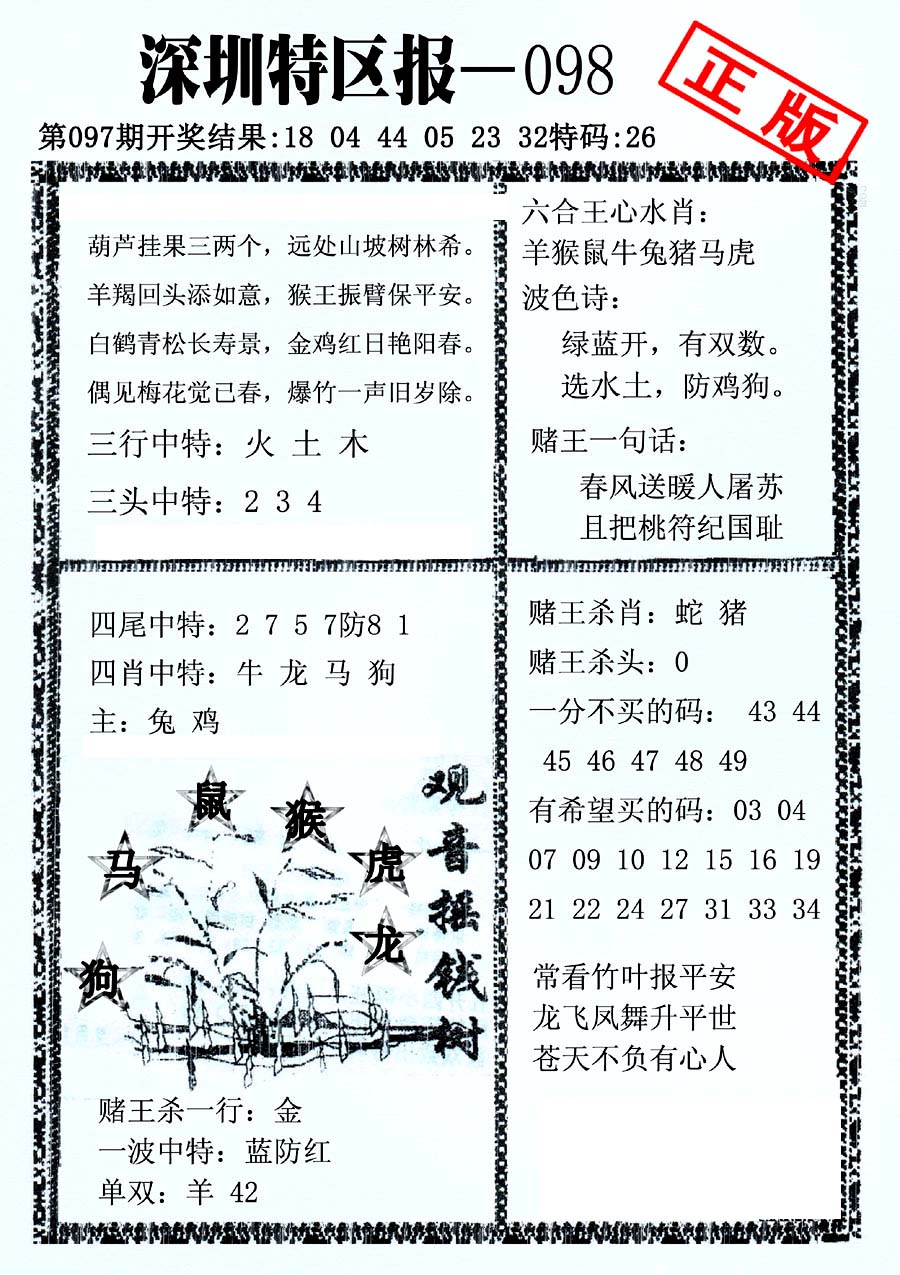 深圳特区报—098
正版
第097期开奖结果:18 04 44 05 23 32特码:26
葫芦挂果三两个，远处山坡树林希。
羊羯回头添如意，猴王振臂保平安。
白鹤青松长寿景，金鸡红日艳阳春。
偶见梅花觉已春，爆竹一声旧岁除。
三行中特：火 土 木
三头中特：2 3 4
六合王心水肖：
羊猴鼠牛兔猪马虎
波色诗：
绿蓝开，有双数。
选水土，防鸡狗。
赌王一句话：
春风送暖人屠苏
且把桃符纪国耻
四尾中特：2 7 5 7防8 1
四肖中特：牛 龙 马 狗
主：兔 鸡
鼠
猴
马
虎
龙
狗
观音摇钱树
赌王杀一行：金
一波中特：蓝防红
单双：羊 42
赌王杀肖：蛇 猪
赌王杀头：0
一分不买的码： 43 44
45 46 47 48 49
有希望买的码：03 04
07 09 10 12 15 16 19
21 22 24 27 31 33 34
常看竹叶报平安
龙飞凤舞升平世
苍天不负有心人